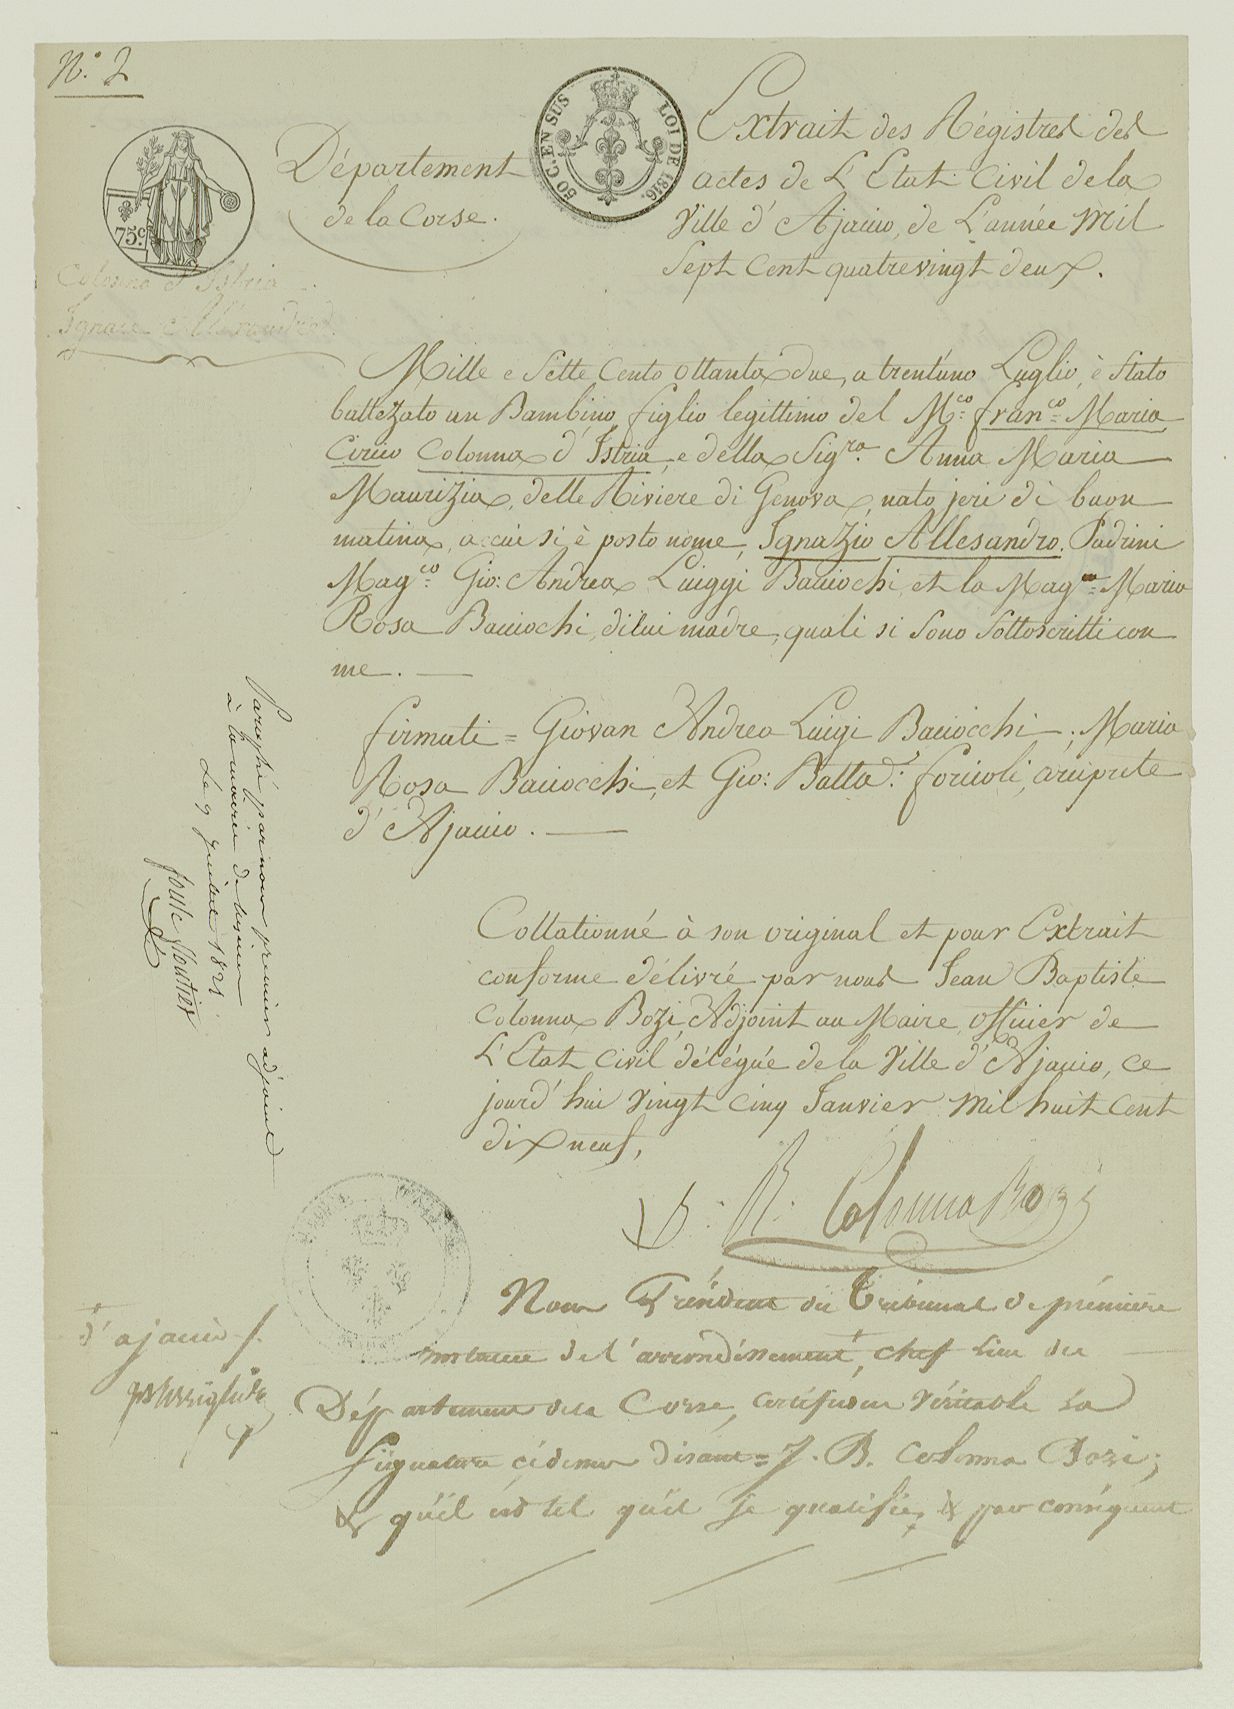 N.° 2
75 c.
50 C. EN SUS
LOI DE 1816.
Département
de la Corse.
Extrait des Régistres des
actes de L'Etat Civil de la
Ville d'Ajaccio, de L'année Mil
Sept Cent quatrevingt deux.
Colonna d'Istria
Ignace Allexandre
Mille e Sette Cento Ottanta due, a trentuno Luglio, è Stato
battezato un Bambino figlio legittimo del M.co Fran.co Maria
Cirico Colonna d'Istria, e della Sig.ra Anna Maria
Maurizia, delle Riviere di Genova, nato jeri di buon
matina, accui si è posto nome, Ignazio Allesandro. Padrini
Mag.co Gio: Andrea Luiggi Baciochi, et la Mag.ca Maria
Rosa Baciochi, di lui madre, quali si Sono Sottoscritti con
me.
firmati = Giovan Andrea Luigi Baciocchi; Maria
Rosa Baciocchi, et Gio: Batta: forcioli, arciprete
d'Ajaccio.
Collationné à son original et pour Extrait
conforme délivré par nous Jean Baptiste
Colonna Bozi, Adjoint au Maire, Officier de
L'Etat Civil délégué de la Ville d'Ajaccio, ce
jourd'hui Vingt Cinq Janvier Mil huit Cent
dix neuf,
J. B. Colonna Bozi
Paraphé par nous premier adjoint
à la mairie de
Le 9 juillet 1821
Nous Président du Tribunal de première
instance de l'arrondissement, chef Lieu du
Département de la Corse, certifions Véritable La
Signature cidessus disant = J. B. Colonna Bozi;
& qu'il est tel qu'il se qualifie, & par conséquent
d'ajaccio